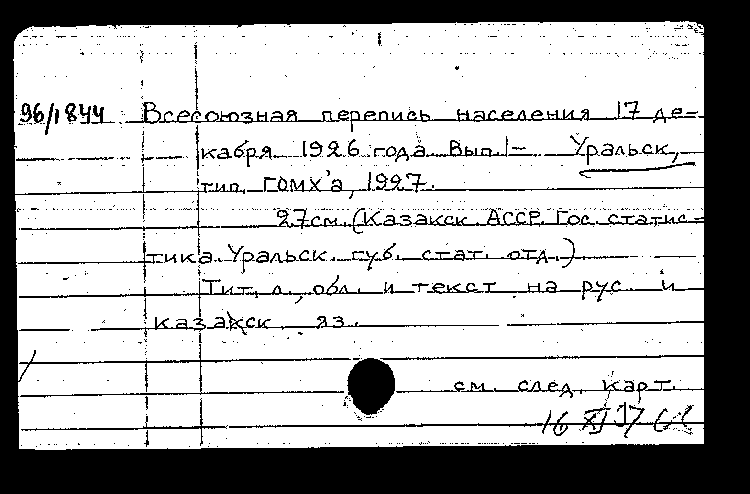 96/1844 Всесоюзная перепись населения 17 де-
кабря 1926 года. Вып. 1- Уральск,
тип. ГОМХ'а, 1927.
27см. (Казакск. АССР. Гос. статис-
тика. Уральск. губ. стат. отд.)
Тит. л., обл. и текст на рус. и
казакск. яз.
см. след. карт.
16 XI 37